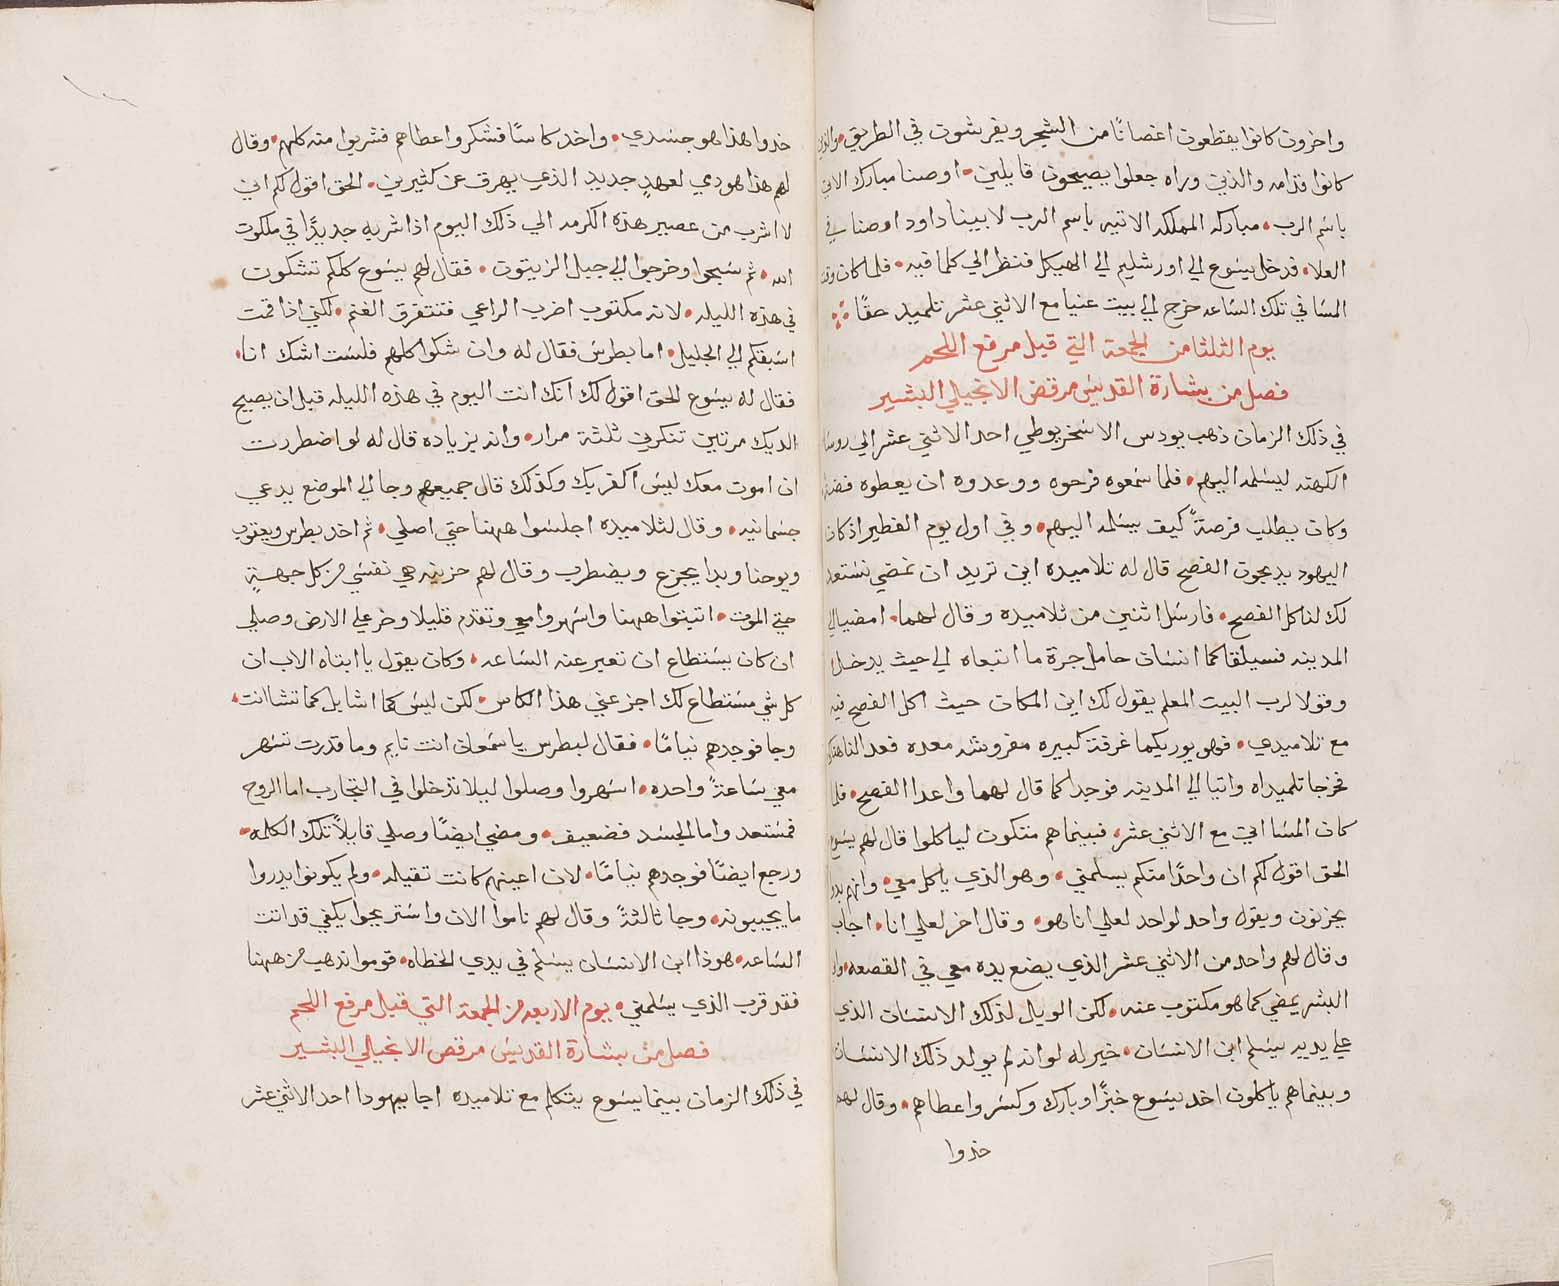 واخرون كانوا يقطعون اغصانًا من الشجر ويفرشون في الطريق • والذين
كانوا قدامه والذين وراه جعلوا يصيحون قايلين • اوصنا مبارك الاتي
باسم الرب • مباركه المملكه الاتيه باسم الرب لابينا داود اوصنا في
العلا • فدخل يسوع الي اورشليم الي الهيكل فنظر الي كلما فيه • فلما كان وقت
المسا في تلك الساعه خرج الي بيت عنيا مع الاثني عشر تلميد حقًا
يوم الثلثا من الجمعة التي قبل مرفع اللحم
فصل من بشارة القديس مرقص الانجيلي البشير
في ذلك الزمان ذهب يودس الاسخريوطي احد الاثني عشر الي روسا
الكهنه ليسلمه اليهم • فلما سمعوه فرحوه ووعدوه ان يعطوه فضه
وكان يطلب فرصةً كيف يسلمه اليهم • وفي اول يوم الفطير اذ كان
اليهود يدبحون الفصح قال له تلاميده اين تريد ان نمضي نستعد
لك لناكل الفصح • فارسل اثنين من تلاميده وقال لهما • امضيا الي
المدينه فسيلقاكما انسان حامل جرة ما اتبعاه الي حيث يدخل
وقولا لرب البيت المعلم يقول لك اين المكان حيث اكل الفصح فيه
مع تلاميدي • فهو يوريكما غرفة كبيره مفروشه معده فعدا لنا هناك
فخرجا تلميداه واتيا الي المدينه فوجدا كما قال لهما واعدا الفصح • فلما
كان المسا اتي مع الاثني عشر • فبينما هم متكون لياكلوا قال لهم يسوع
الحق اقول لكم ان واحدًا منكم يسلمني • وهو الذي ياكل معي • وانهم بدوا
يحزنون ويقول واحد لواحد لعلي انا هو • وقال اخر لعلي انا • اجاب
وقال لهم واحد من الاثني عشر الذي يضع يده معي في القصعه • وابن
البشر يمضي كما هو مكتوب عنه • لكن الويل لذلك الانسان الذي
علي يديه يسلم ابن الانسان • خير له لو انه لم يولد ذلك الانسان
وبينما هم ياكلون اخد يسوع خبزًا وبارك وكسر واعطاهم • وقال لهم
خدوا
خدوا هذا هو جسدي • واخد كاسًا فشكر واعطاهم فشربوا منه كلهم • وقال
لهم هذا هو دمي لعهدٍ جديد الذي يهرق عن كثيرين • الحق اقول لكم اني
لا اشرب من عصير هذه الكرمه الي ذلك اليوم اذا شربه جديدًا في ملكوت
الله • ثم سبحوا وخرجوا الي جبل الزيتون • فقال لهم يسوع كلكم تشكون
في هذه الليله • لانه مكتوب اضرب الراعي فتتفرق الغنم • لكني اذا قمت
اسبقكم الي الجليل • اما بطرس فقال له وان شكوا كلهم فلست اشك انا •
فقال له يسوع الحق اقول لك انك انت اليوم في هذه الليله قبل ان يصيح
الديك مرتين تنكرني ثلثة مرار • وانه بزياده قال له لو اضطررت
ان اموت معك ليس اكفر بك وكذلك قال جميعهم وجا الي الموضع يدعي
جسمانيه • وقال لتلاميده اجلسوا ههنا حتي اصلي • ثم اخد بطرس ويعقوب
ويوحنا وبدا يجزع ويضطرب وقال لهم حزينه هي نفسي من كل جهةٍ
حتي الموت • اثبتوا ههنا واسهروا معي وتقدم قليلا وخر علي الارض وصلي
ان كان يستطاع ان تعبر عنه الساعه • وكان يقول يا ابتاه الاب ان
كل شي مستطاع لك اجز عني هذا الكاس • لكن ليس كما اشا بل كما تشا انت •
وجا فوجدهم نيامًا • فقال لبطرس ياسمعان انت نايم وما قدرت تسهر
معي ساعةً واحده • اسهروا وصلوا ليلا تدخلوا في التجارب اما الروح
فمستعد واما الجسد فضعيف • ومضي ايضًا وصلي قايلاً تلك الكلمه •
ورجع ايضًا فوجدهم نيامًا • لان اعينهم كانت تقيله • ولم يكونوا يدروا
ما يجيبونه • وجا ثالثةً وقال لهم ناموا الان واستريحوا يكفي قد اتت
الساعه • هوذا ابن الانسان يسلم في يدي الخطاه • قوموا ندهب من ههنا
فقد قرب الذي يسلمني • يوم الاربعه من الجمعة التي قبل مرفع اللحم
فصل من بشارة القديس مرقص الانجيلي البشير
في ذلك الزمان بينما يسوع يتكلم مع تلاميده اجا يهودا احد الاثني عشر